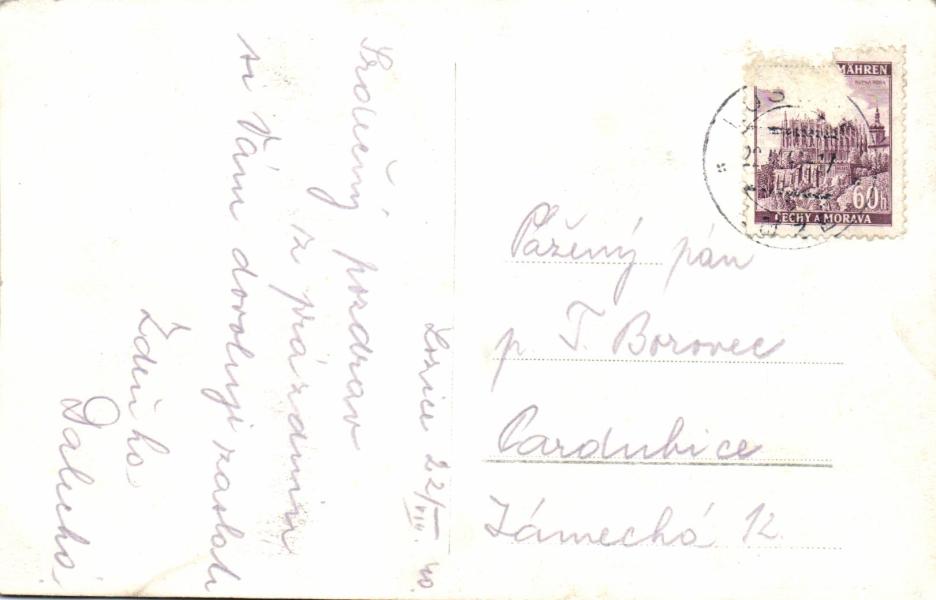 Lozice 22/VIII. 40.
Srdečný pozdrav
z prázdnin
si Vám dovoluji zaslati
Zdeňka
MÄHREN
60h
ČECHY A MORAVA
Vážený pán
p. T. Borovec
Pardubice
Zámecká 12